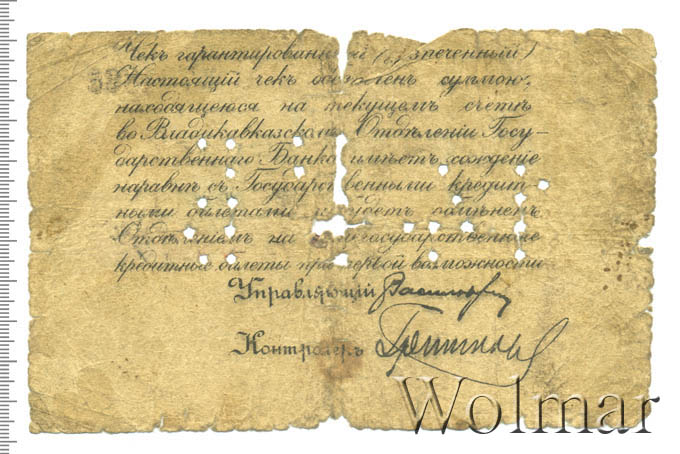 Чекъ гарантированный (обезпеченный)
Настоящій чекъ обезпеченъ суммою,
находящеюся на текущемъ счетѣ
во Владикавказскомъ Отдѣленіи Госу-
дарственнаго Банка имѣетъ хожденіе
наравнѣ съ Государственными кредит-
ными билетами и будетъ обмѣненъ
Отдѣленіемъ на Государственные
кредитные билеты при первой возможности
Управляющій
Контролеръ
Wolmar